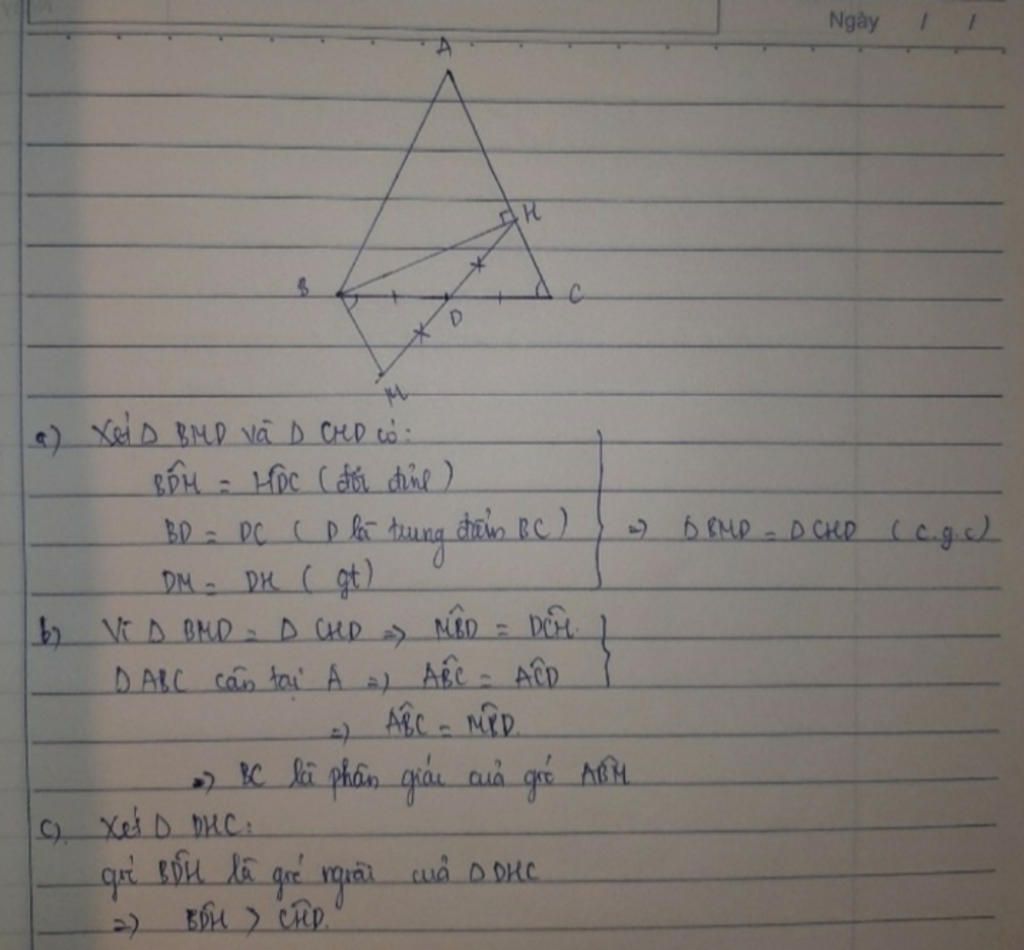 Ngày / /
A
H
B
C
D
M
a) Xét Δ BMD và Δ CHD có:
BDM = HDC (đối đỉnh)
BD = DC (D là trung điểm BC)
DM = DH (gt)
=> Δ BMD = Δ CHD (c.g.c)
b) Vì Δ BMD = Δ CHD => MBD = DCH.
Δ ABC cân tại A => ABC = ACD
=> ABC = MBD.
=> BC là phân giác của góc ABM
c) Xét Δ DHC:
góc BDH là góc ngoài của Δ DHC
=> BDH > CHD.